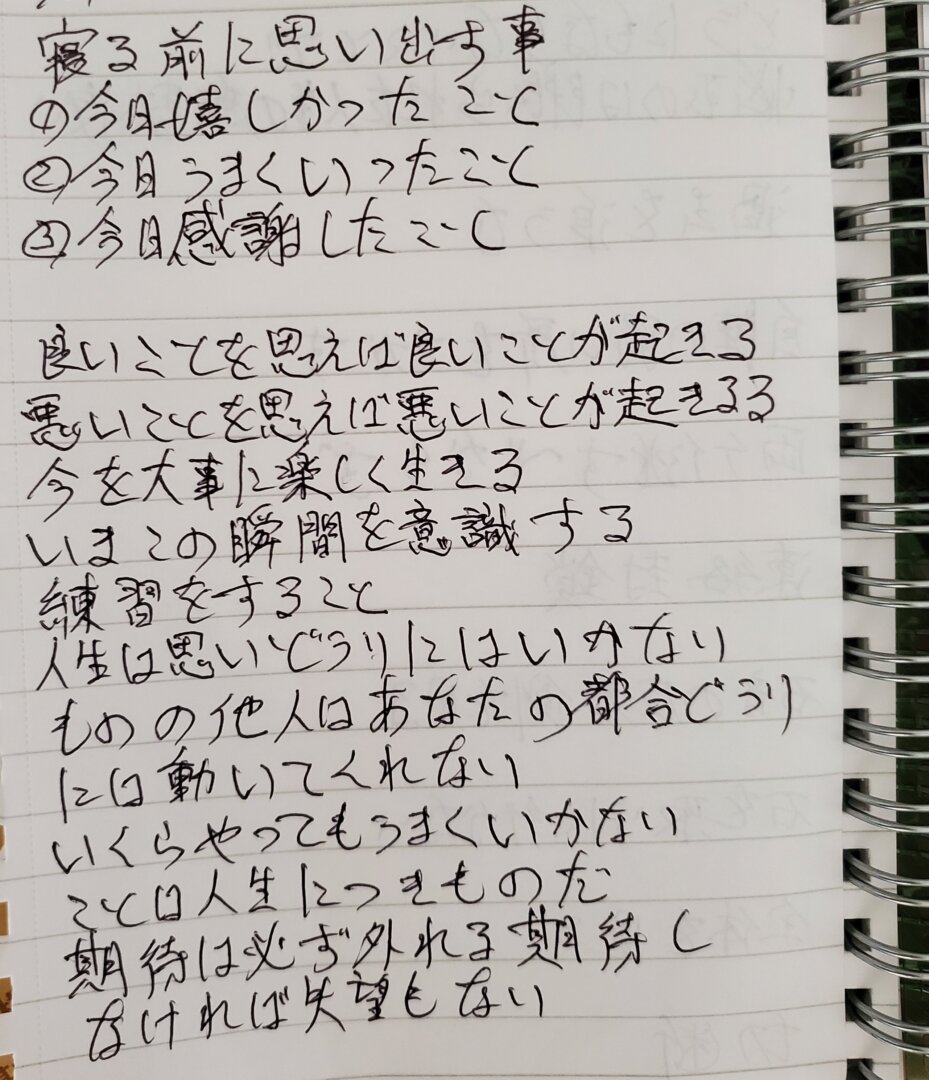 寝る前に思い出す事
①今日嬉しかったこと
②今日うまくいったこと
③今日感謝したこと
良いことを思えば良いことが起きる
悪いことを思えば悪いことが起きるる
今を大事に楽しく生きる
いまこの瞬間を意識する
練習をすること
人生は思いどうりにはいかない
ものの他人はあなたの都合どうり
には動いてくれない
いくらやってもうまくいかない
ことは人生につきものだ
期待は必ず外れる期待し
なければ失望もない